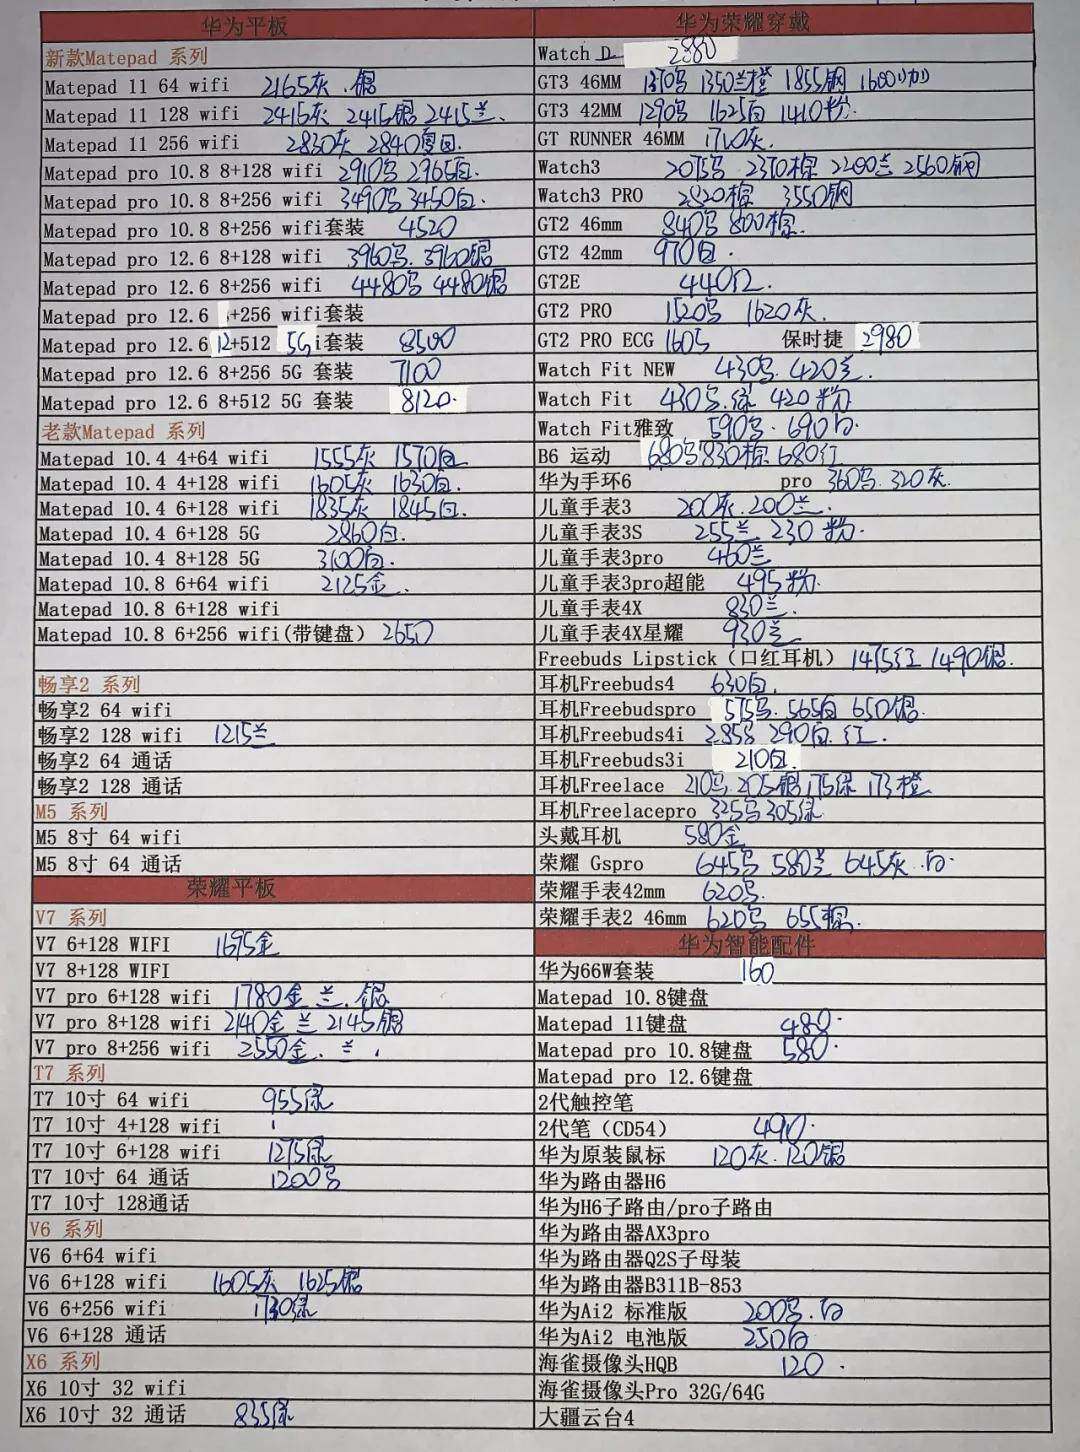 华为平板
新款Matepad 系列
Matepad 11 64 wifi 2165灰.银
Matepad 11 128 wifi 2415灰 2415银 2415兰.
Matepad 11 256 wifi 2830灰 2840
Matepad pro 10.8 8+128 wifi 2910 2965白.
Matepad pro 10.8 8+256 wifi 3490 3450白.
Matepad pro 10.8 8+256 wifi套装 4520
Matepad pro 12.6 8+128 wifi 3960 3960银
Matepad pro 12.6 8+256 wifi 4480 4480银
Matepad pro 12.6 +256 wifi套装
Matepad pro 12.6 12+512 5G i套装 8500
Matepad pro 12.6 8+256 5G 套装 7100
Matepad pro 12.6 8+512 5G 套装 8120.
老款Matepad 系列
Matepad 10.4 4+64 wifi 1555灰 1570白
Matepad 10.4 4+128 wifi 1605灰 1630白.
Matepad 10.4 6+128 wifi 1835灰 1845白.
Matepad 10.4 6+128 5G 2860白.
Matepad 10.4 8+128 5G 3100白.
Matepad 10.8 6+64 wifi 2125金.
Matepad 10.8 6+128 wifi
Matepad 10.8 6+256 wifi(带键盘) 2650
畅享2 系列
畅享2 64 wifi
畅享2 128 wifi 1215兰
畅享2 64 通话
畅享2 128 通话
M5 系列
M5 8寸 64 wifi
M5 8寸 64 通话
荣耀平板
V7 系列
V7 6+128 WIFI 1695金
V7 8+128 WIFI
V7 pro 6+128 wifi 1780金 兰.银
V7 pro 8+128 wifi 2140金 兰 2145银
V7 pro 8+256 wifi 2550金.兰.
T7 系列
T7 10寸 64 wifi 955绿
T7 10寸 4+128 wifi
T7 10寸 6+128 wifi 1275绿
T7 10寸 64 通话 1200
T7 10寸 128通话
V6 系列
V6 6+64 wifi
V6 6+128 wifi 1605灰 1625银
V6 6+256 wifi 1730绿
V6 6+128 通话
X6 系列
X6 10寸 32 wifi
X6 10寸 32 通话 835绿
华为荣耀穿戴
Watch D 2880
GT3 46MM 1310 1350兰橙 1855钢
GT3 42MM 1290 1625白 1410粉.
GT RUNNER 46MM 1710灰.
Watch3 2075 2370棕 2200兰 2560钢
Watch3 PRO 2820棕 3550钢
GT2 46mm 840 800棕.
GT2 42mm 970白.
GT2E 440
GT2 PRO 1520 1620灰
GT2 PRO ECG 1605 保时捷 2980
Watch Fit NEW 430 420兰.
Watch Fit 430.绿 420粉
Watch Fit雅致 590.690白.
B6 运动 680 830棕 680红
华为手环6 pro 360 320灰.
儿童手表3 200灰.200兰.
儿童手表3S 255兰 230粉.
儿童手表3pro 460兰
儿童手表3pro超能 495粉.
儿童手表4X 830兰.
儿童手表4X星耀 930兰
Freebuds Lipstick(口红耳机) 1475红 1490银.
耳机Freebuds4 630白.
耳机Freebudspro 575 565白 650银.
耳机Freebuds4i 285 290白.红.
耳机Freebuds3i 210白.
耳机Freelace 210 205银 175绿 173橙
耳机Freelacepro 325 305绿
头戴耳机 580金
荣耀 Gspro 645 580兰 645灰.白.
荣耀手表42mm 620
荣耀手表2 46mm 620 655棕.
华为智能配件
华为66W套装 160
Matepad 10.8键盘
Matepad 11键盘 480.
Matepad pro 10.8键盘 580.
Matepad pro 12.6键盘
2代触控笔
2代笔(CD54) 490.
华为原装鼠标 120灰.120银
华为路由器H6
华为H6子路由/pro子路由
华为路由器AX3pro
华为路由器Q2S子母装
华为路由器B311B-853
华为Ai2 标准版 200.白
华为Ai2 电池版 250白
海雀摄像头HQB 120.
海雀摄像头Pro 32G/64G
大疆云台4